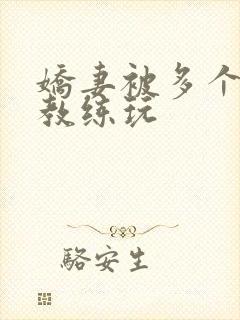 嬌妻被多个
教练玩
駱安生